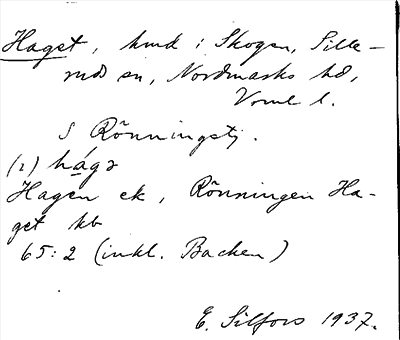 Haget, hmd i Skogen, Sille-
ruds sn, Nordmarks hd,
Värml l.
S Rönningstj.
(2) hágə
Hagen ek, Rönningen Ha-
get kb
65:2 (inkl. Backen)
E. Silfors 1937.